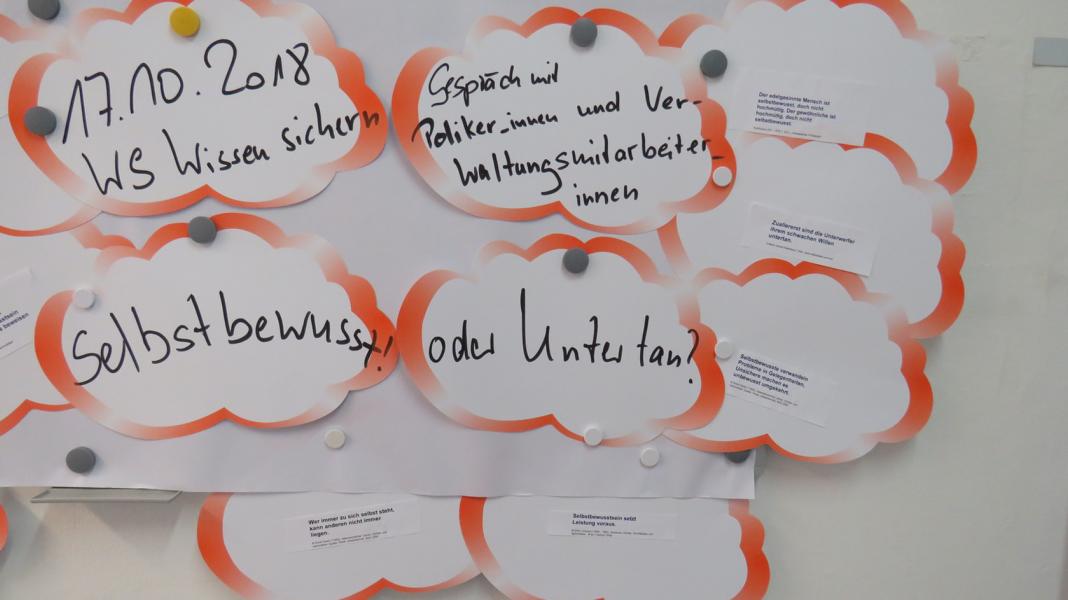 17.10.2018
WS Wissen sichern
Gespräch mit
Poliker_innen und Ver-
waltungsmitarbeiter_
innen
Selbstbewusst!
oder Untertan?
Der edelgesinnte Mensch ist
selbstbewusst, doch nicht
hochmütig. Der gewöhnliche ist
hochmütig, doch nicht
selbstbewusst.
Zuallererst sind die Unterwerfer
ihrem schwachen Willen
untertan.
Selbstbewusste verwandeln
Probleme in Gelegenheiten,
Unsichere machen es
unbewusst umgekehrt.
Wer immer zu sich selbst steht,
kann anderen nicht immer
liegen.
Selbstbewusstsein setzt
Leistung voraus.
beweisen